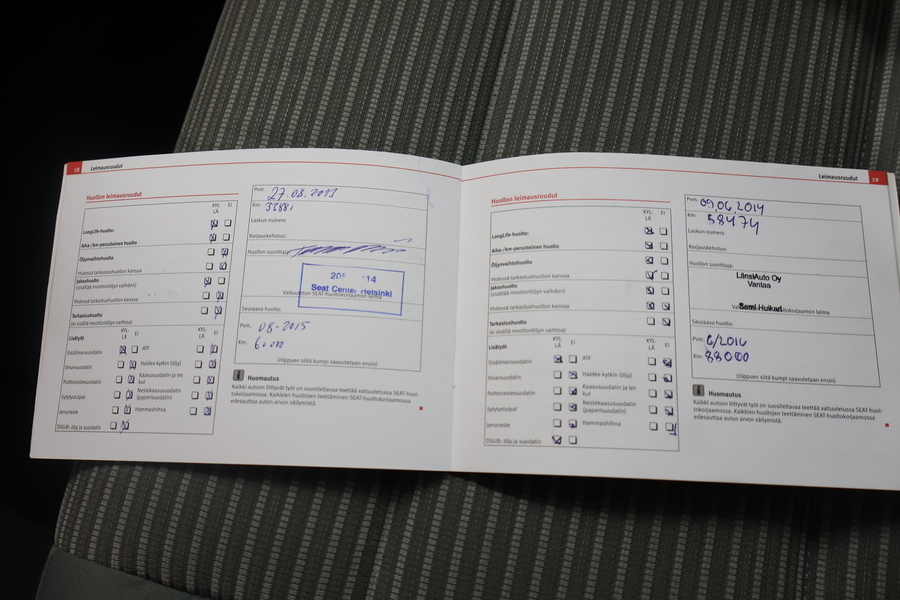 18 Leimausruudut
Huollon leimausruudut
KYL-
LÄ
EI
LongLife-huolto:
Aika-/km-perusteinen huolto
Öljynvaihtohuolto
Yhdessä tarkastushuollon kanssa
Jaksohuolto
(sisältää moottoriöljyn vaihdon)
Yhdessä tarkastushuollon kanssa
Tarkastushuolto
(ei sisällä moottoriöljyn vaihtoa)
Lisätyöt
KYL-
LÄ
EI
KYL-
LÄ
EI
Sisäilmansuodatin
ATF
Ilmansuodatin
Haldex-kytkin (öljy)
Polttonestesuodatin
Kaasusuodatin ja let-
kut
Sytytystulpat
Nestekaasusuodatin
(paperisuodatin)
Jarruneste
Hammashihna
DSG®: öljy ja suodatin
Pvm.
Km:
Laskun numero
Korjauskehotus:
Huollon suorittaja:
Seat Center Helsinki
Seuraava huolto:
Pvm.: 08-2015
Km:
(riippuen siitä kumpi saavutetaan ensin)
Huomautus
Kaikki autoon liittyvät työt on suositeltavaa teettää valtuutetussa SEAT-huol-
tokorjaamossa. Kaikkien huoltojen teettäminen SEAT-huoltokorjaamossa
edesauttaa auton arvon säilymistä.
Leimausruudut 19
Huollon leimausruudut
KYL-
LÄ
EI
LongLife-huolto:
Aika-/km-perusteinen huolto
Öljynvaihtohuolto
Yhdessä tarkastushuollon kanssa
Jaksohuolto
(sisältää moottoriöljyn vaihdon)
Yhdessä tarkastushuollon kanssa
Tarkastushuolto
(ei sisällä moottoriöljyn vaihtoa)
Lisätyöt
KYL-
LÄ
EI
KYL-
LÄ
EI
Sisäilmansuodatin
ATF
Ilmansuodatin
Haldex-kytkin (öljy)
Polttonestesuodatin
Kaasusuodatin ja let-
kut
Sytytystulpat
Nestekaasusuodatin
(paperisuodatin)
Jarruneste
Hammashihna
DSG®: öljy ja suodatin
Pvm.: 09.06.2014
Km: 58474
Laskun numero
Korjauskehotus:
Huollon suorittaja:
LänsiAuto Oy
Vantaa
Seuraava huolto:
Pvm.: 6/2016
Km: 88000
(riippuen siitä kumpi saavutetaan ensin)
Huomautus
Kaikki autoon liittyvät työt on suositeltavaa teettää valtuutetussa SEAT-huol-
tokorjaamossa. Kaikkien huoltojen teettäminen SEAT-huoltokorjaamossa
edesauttaa auton arvon säilymistä.